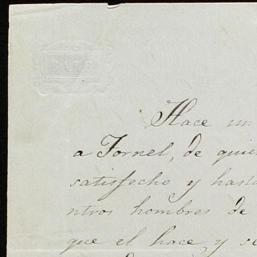 Hace un
a Fornel, de quie
satisfecho y hasta
ntros hombres de
que el hace, y se